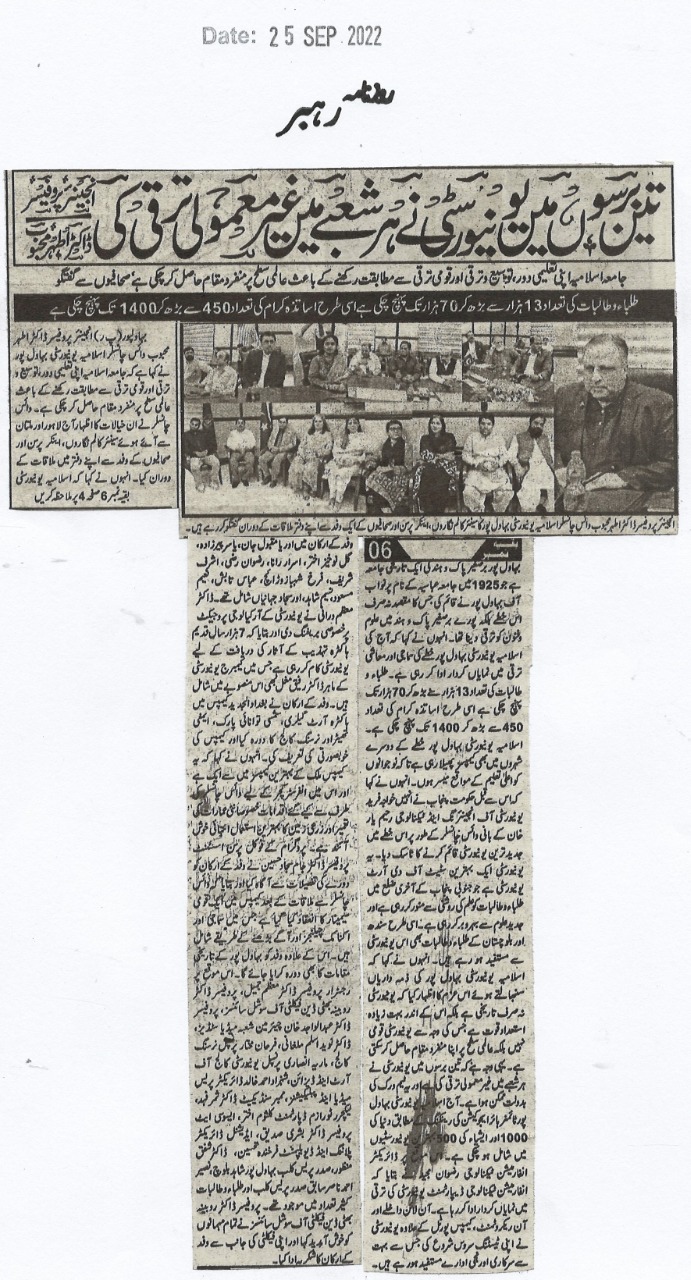 Date: 25 SEP 2022
روزنامہ رہبر
تین برسوں میں یونیورسٹی نے ہر شعبے میں غیر معمولی ترقی کی
انجینئر پروفیسر
ڈاکٹر اطہر محبوب
جامعہ اسلامیہ اپنی تعلیمی دور، توسیع و ترقی اور قومی ترقی سے مطابقت رکھنے کے باعث عالمی سطح پر منفرد مقام حاصل کر چکی ہے، صحافیوں سے گفتگو
طلباء و طالبات کی تعداد 13 ہزار سے بڑھ کر 70 ہزار تک پہنچ چکی ہے اسی طرح اساتذہ کرام کی تعداد 450 سے بڑھ کر 1400 تک پہنچ چکی ہے
بہاولپور (پ ر) انجینئر پروفیسر ڈاکٹر اطہر
محبوب وائس چانسلر اسلامیہ یونیورسٹی بہاول پور
نے کہا ہے کہ جامعہ اسلامیہ اپنی تعلیمی دور، توسیع و
ترقی اور قومی ترقی سے مطابقت رکھنے کے باعث
عالمی سطح پر منفرد مقام حاصل کر چکی ہے۔ وائس
چانسلر نے ان خیالات کا اظہار آج لاہور اور ملتان
سے آئے ہوئے سینئر کالم نگاروں، اینکر پرسن اور
صحافیوں کے وفد سے اپنے دفتر میں ملاقات کے
دوران کیا۔ انہوں نے کہا کہ اسلامیہ یونیورسٹی
بقیہ نمبر 6 صفحہ 4 پر ملاحظہ کریں
انجینئر پروفیسر ڈاکٹر اطہر محبوب وائس چانسلر اسلامیہ یونیورسٹی بہاول پور کا سینئر کالم نگاروں، اینکر پرسن اور صحافیوں کے ایک وفد سے اپنے دفتر ملاقات کے دوران گفتگو کر رہے ہیں۔
بقیہ نمبر 06
بہاول پور برصغیر پاک و ہند کی ایک تاریخی جامعہ
ہے جو 1925 میں جامعہ عباسیہ کے نام پر نواب
آف بہاول پور نے قائم کی جس کا مقصد نہ صرف
اس خطے بلکہ پورے برصغیر پاک و ہند میں علوم
و فنون کو ترقی دینا تھا۔ انہوں نے کہا کہ آج کی
اسلامیہ یونیورسٹی بہاول پور خطے کی سماجی اور معاشی
ترقی میں نمایاں کردار ادا کر رہی ہے۔ طلباء و
طالبات کی تعداد 13 ہزار سے بڑھ کر 70 ہزار تک
پہنچ چکی ہے اسی طرح اساتذہ کرام کی تعداد
450 سے بڑھ کر 1400 تک پہنچ چکی ہے۔
اسلامیہ یونیورسٹی بہاول پور خطے کے دوسرے
شہروں میں بھی کیمپسز پھیلا رہی ہے تاکہ نوجوانوں
کو اعلیٰ تعلیم کے مواقع میسر ہوں۔ انہوں نے کہا
کہ اس سے قبل حکومت پنجاب نے انہیں خواجہ فرید
یونیورسٹی آف انجینئرنگ اینڈ ٹیکنالوجی رحیم یار
خان کے بانی وائس چانسلر کے طور پر اس خطے میں
جدید ترین یونیورسٹی قائم کرنے کا ٹاسک دیا۔ یہ
یونیورسٹی ایک بہترین سٹیٹ آف دی آرٹ
یونیورسٹی ہے جو جنوبی پنجاب کے آخری ضلع میں
طلباء و طالبات کو علم کی روشنی سے منور کر رہی ہے اور
جدید علوم سے بہرہ ور کر رہی ہے۔ اسی طرح سندھ
اور بلوچستان کے طلباء و طالبات بھی اس یونیورسٹی
سے مستفید ہو رہے ہیں۔ انہوں نے کہا کہ
اسلامیہ یونیورسٹی بہاول پور کی ذمہ داریاں
سنبھالتے ہوئے اس عزم کا اظہار کیا کہ یونیورسٹی
نہ صرف تاریخی ہے بلکہ اس کے اندر بہت زیادہ
استعداد قوت ہے جس کی وجہ سے یونیورسٹی قومی
نہیں بلکہ عالمی سطح پر اپنا منفرد مقام حاصل کر سکتی
ہے۔ یہی وجہ ہے کہ تین برسوں میں یونیورسٹی نے
ہر شعبے میں غیر معمولی ترقی کی اور یہ ٹیم ورک کی
بدولت ممکن ہوا ہے۔ آج اسلامیہ یونیورسٹی بہاول
پور ٹائمز ہائر ایجوکیشن کی رینکنگ کے مطابق دنیا کی
1000 اور ایشیاء کی 500 بہترین یونیورسٹیوں
میں شامل ہو چکی ہے۔ اس موقع پر ڈائریکٹر
انفارمیشن ٹیکنالوجی رضوان مجید نے بتایا کہ
انفارمیشن ٹیکنالوجی ڈیپارٹمنٹ یونیورسٹی کی ترقی
میں نمایاں کردار ادا کر رہا ہے۔ آن لائن داخلے اور
آن ریکروٹمنٹ، کیمپس پورٹل کے علاوہ یونیورسٹی
نے اپنی ٹیسٹنگ سروس شروع کی جس سے بہت
سے سرکاری اور نجی ادارے مستفید ہو رہے ہیں۔
وفد کے ارکان میں اوریا مقبول جان، یاسر پیرزادہ،
گل نوخیز اختر، اسرار رانا، رضوان رضی، اشرف
شریف، فرخ شہباز وڑائچ، عباس تابش، کلیم
مسعود، نسیم شاہد، اور سجاد جہانیاں شامل تھے۔ ڈاکٹر
معظم درانی نے یونیورسٹی کے آرکیالوجی پروجیکٹ
پر خصوصی بریفنگ دی اور بتایا کہ 7 ہزار سال قدیم
ہاکڑہ تہذیب کے آثار کی دریافت کے لیے
یونیورسٹی کام کر رہی ہے جس میں کیمبرج یونیورسٹی
کے ماہر ڈاکٹر رفیق مغل بھی اس منصوبے میں شامل
ہیں۔ وفد کے ارکان نے بغداد الجدید کیمپس میں
ہاکڑہ آرٹ گیلری، شمسی توانائی پارک، ایمفی
تھیٹر اور نرسنگ کالج کا دورہ کیا اور کیمپس کی
خوبصورتی کی تعریف کی۔ انہوں نے کہا کہ یہ
کیمپس ملک کے بہترین کیمپسز میں سے ایک ہے
اور اس میں انفراسٹرکچر کے لیے وائس چانسلر کی
طرف سے کیے گئے اقدامات خصوصاً نئی عمارات کی
تعمیر اور زرعی زمین کا بہترین استعمال انتہائی خوش
آئند ہے۔ پروگرام کے فوکل پرسن اسسٹنٹ
پروفیسر ڈاکٹر جام سجاد حسین نے وفد کے ارکان کو
دورے کی تفصیلات سے آگاہ کیا اور بتایا کہ وائس
چانسلر سے ملاقات کے بعد کیمپس میں ایک قومی
سیمینار کا انعقاد کیا گیا ہے جس میں سماجی اور
اکنامک چیلنجز اور آگے بڑھنے کے طریقے شامل
ہیں۔ اس کے علاوہ وفد کو بہاول پور کے تاریخی
مقامات کا بھی دورہ کرایا جائے گا۔ اس موقع پر
رجسٹرار پروفیسر ڈاکٹر معظم جمیل، پروفیسر ڈاکٹر
روبینہ بھٹی ڈین فیکلٹی آف سوشل سائنسز، پروفیسر
ڈاکٹر عبدالواجد خان چیئرمین شعبہ میڈیا سٹڈیز،
ڈاکٹر نوید اسلم ملغانی، فرحان مختار پرنسپل نرسنگ
کالج، ماریہ انصاری پرنسپل یونیورسٹی کالج آف
آرٹ اینڈ ڈیزائن، شہزاد احمد خالد ڈائریکٹر پریس
میڈیا اینڈ پبلیکیشنز، ممبر سنڈیکیٹ ڈاکٹر ثمر فہد،
لیکچرر ٹورازم ڈپارٹمنٹ کلثوم اختر، ایسوسی ایٹ
پروفیسر ڈاکٹر بشریٰ صدیق، ایڈیشنل ڈائریکٹر
پلاننگ اینڈ ڈیولپمنٹ فرخندہ تحسین، ڈاکٹر شفق
منظور، صدر پریس کلب بہاول پور شاہد بلوچ، نصیر
احمد ناصر سابق صدر پریس کلب اور طلباء و طالبات
کثیر تعداد میں موجود تھے۔ پروفیسر ڈاکٹر روبینہ
بھٹی ڈین فیکلٹی آف سوشل سائنسز نے تمام مہمانوں
کو خوش آمدید کہا اور اپنی فیکلٹی کی جانب سے وفد
کے ارکان کا شکریہ ادا کیا۔